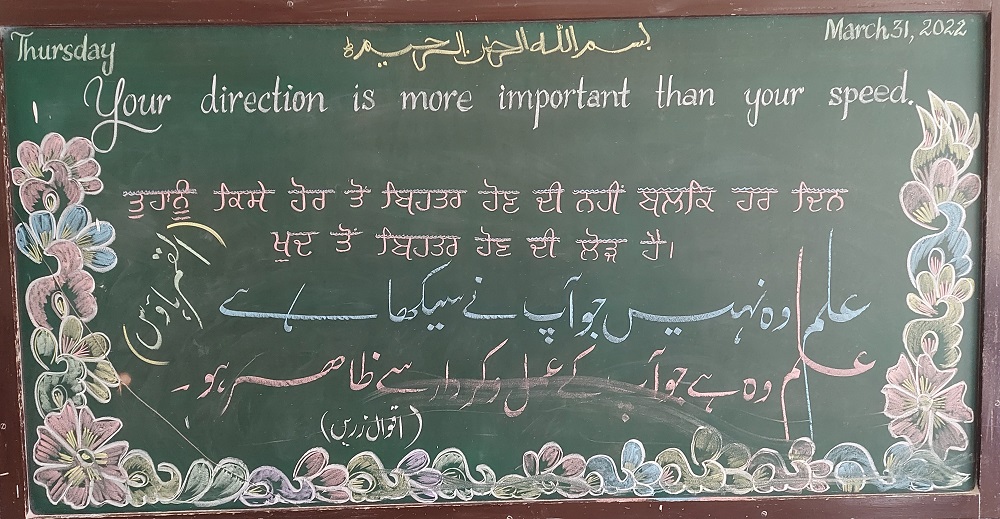 Thursday
بسم اللہ الرحمٰن الرحیم
March 31, 2022
Your direction is more important than your speed.
ਤੁਹਾਨੂੰ ਕਿਸੇ ਹੋਰ ਤੋਂ ਬਿਹਤਰ ਹੋਣ ਦੀ ਨਹੀਂ ਬਲਕਿ ਹਰ ਦਿਨ
ਖੁਦ ਤੋਂ ਬਿਹਤਰ ਹੋਣ ਦੀ ਲੋੜ ਹੈ।
علم وہ نہیں جو آپ نے سیکھا ہے
علم وہ ہے جو آپ کے عمل و کردار سے ظاہر ہو۔
(اقوال زریں)